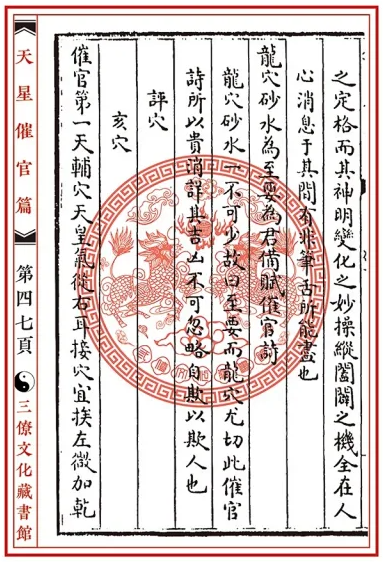 之定格而其神明變化之妙操縱闔闢之機全在人
心消息于其間有非筆舌所能盡也
龍穴砂水為至要為君備賦催官詩
龍穴砂水一不可少故曰至要而龍穴尤切此催官
詩所以貴消詳其吉凶不可忽略自欺以欺人也
評穴
亥穴
催官第一天輔穴天皇氣從右耳接穴宜挨左微加乾
天星催官篇
第四七頁
三僚文化藏書館